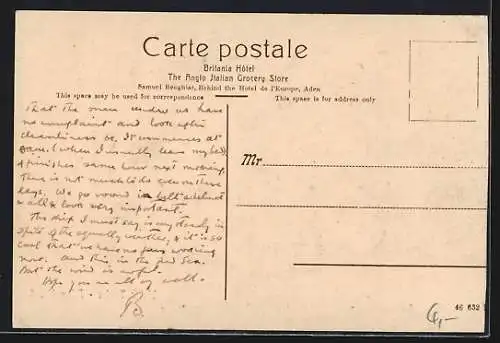 Carte postale
Britania Hôtel
The Anglo Italian Grocery Store
Samuel Benghiat, Behind the Hotel de l'Europe, Aden
This space may be used for correspondence
This space is for address only
that the men under us have
no complaint and look after
cleanliness &c. It commences at
8am (when I usually leave my bed)
& finishes same hour next morning.
There is not much to do even these
days. We go round in belt
& all & look very important.
The ship I must say, is very steady in
spite of the squally weather, & it is so
cool that we have no fans working
now. and this in the Red Sea.
But the wind is awful.
Hope you are all of well.
B.
Mr
6,-
46 632